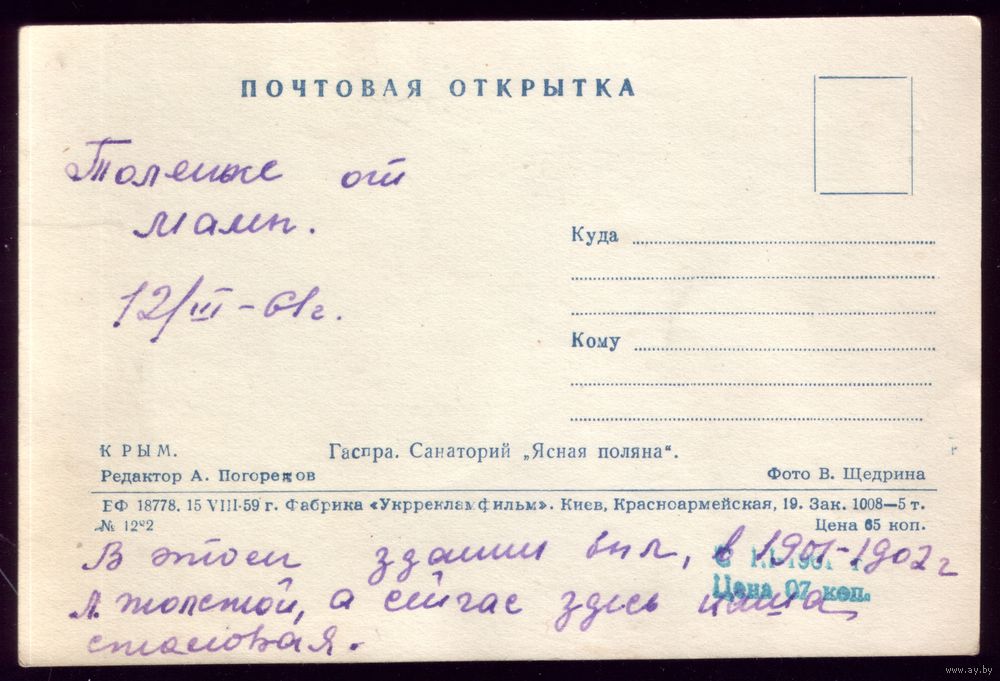 ПОЧТОВАЯ ОТКРЫТКА
Толеньке от
мамы.
12/III-61г.
Куда
Кому
КРЫМ. Гаспра. Санаторий „Ясная поляна“.
Редактор А. Погорелов Фото В. Щедрина
БФ 18778. 15 VIII-59 г. Фабрика «Укррекламфильм». Киев, Красноармейская, 19. Зак. 1008—5 т.
№ 1292 Цена 65 коп.
В этом здании был, в 1901-1902 г
Л. Толстой, а сейчас здесь наша
столовая.
С 1.I-1961 г.
Цена 07 коп.
www.ay.by